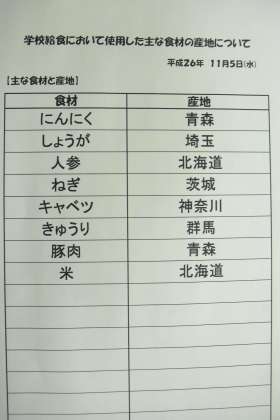 学校給食において使用した主な食材の産地について
平成26年 11月5日(水)
【主な食材と産地】
食材 産地
にんにく 青森
しょうが 埼玉
人参 北海道
ねぎ 茨城
キャベツ 神奈川
きゅうり 群馬
豚肉 青森
米 北海道